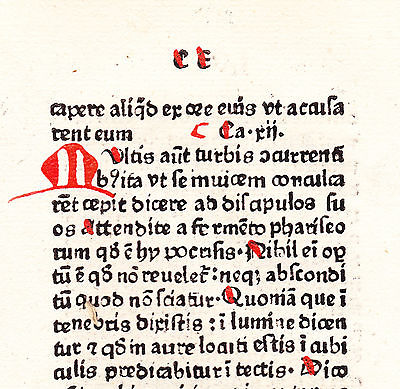 C E
capere aliq̄d ex ore eius vt accusa
rent eum C Ca·xij.
MUltis aūt turbis ↄcurrenti
bꝰita vt se inuicem conculca
rēt cepit dicere ad discipulos su
os Attendite a fermēto phariseo
rum qd̄ ē hypocrisis·Nihil eī op
tū ē qd̄ nō reueletᷣ:neqꝫ abscondi
tū quod nō sciatur·Quoniā que ī
tenebris dixistis : ī lumine dicen
tur ⁊ qd̄ in aure locuti estis ī cubi
culis predicabitur ī tectis·Dico